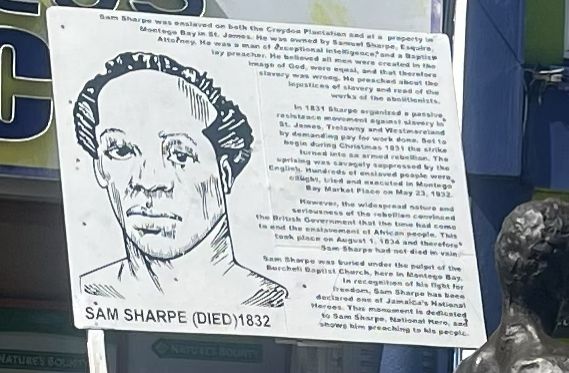 Sam Sharpe was enslaved on both the Croydon Plantation and at a property in
Montego Bay in St. James. He was owned by Samuel Sharpe, Esquire,
Attorney. He was a man of exceptional intelligence and a Baptist
lay preacher. He believed all men were created in the
image of God, were equal, and that therefore
slavery was wrong. He preached about the
injustices of slavery and read of the
works of the abolitionists.
In 1831 Sharpe organized a passive
resistance movement against slavery in
St. James, Trelawny and Westmoreland
by demanding pay for work done. Set to
begin during Christmas 1831 the strike
turned into an armed rebellion. The
uprising was savagely suppressed by the
English. Hundreds of enslaved people were
caught, tried and executed in Montego
Bay Market Place on May 23, 1832.
However, the widespread nature and
seriousness of the rebellion convinced
the British Government that the time had come
to end the enslavement of African people. This
took place on August 1, 1834 and therefore
Sam Sharpe had not died in vain
Sam Sharpe was buried under the pulpit of the
Burchell Baptist Church, here in Montego Bay.
In recognition of his fight for
freedom, Sam Sharpe has been
declared one of Jamaica's National
Heroes. This monument is dedicated
to Sam Sharpe, National Hero, and
shows him preaching to his people.
SAM SHARPE (DIED)1832
NATURE'S BOUNTY
NATURE'S BOUNTY